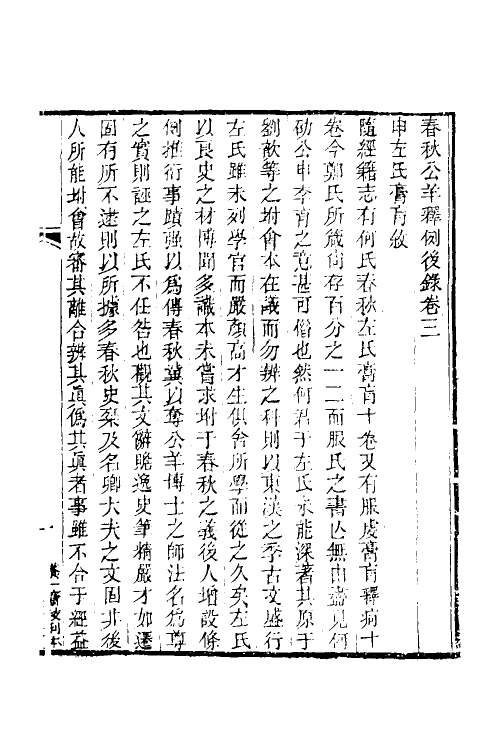 春秋公羊釋例後錄卷三
申左氏膏肓敘
隨經籍志有何氏春秋左氏膏肓十卷又有服虔膏肓釋痾十
卷今鄭氏所箴尚存百分之一二而服氏之書亾無由盡見何
劭公申李育之意甚可惜也然何君于左氏未能深著其原于
劉歆等之坿會本在議而勿辨之科則以東漢之季古文盛行
左氏雖未列學官而嚴顏高才生俱舍所學而從之久矣左氏
以良史之材博聞多識本未嘗求坿于春秋之義後人增設條
例推衍事蹟强以爲傳春秋冀以奪公羊博士之師法名爲尊
之實則誣之左氏不任咎也觀其文辭贍逸史筆精嚴才如遷
固有所不逮則以所據多春秋史乘及名卿大夫之文固非後
人所能坿會故審其離合辨其眞僞其眞者事雖不合于經益
一
養一齋校刊本